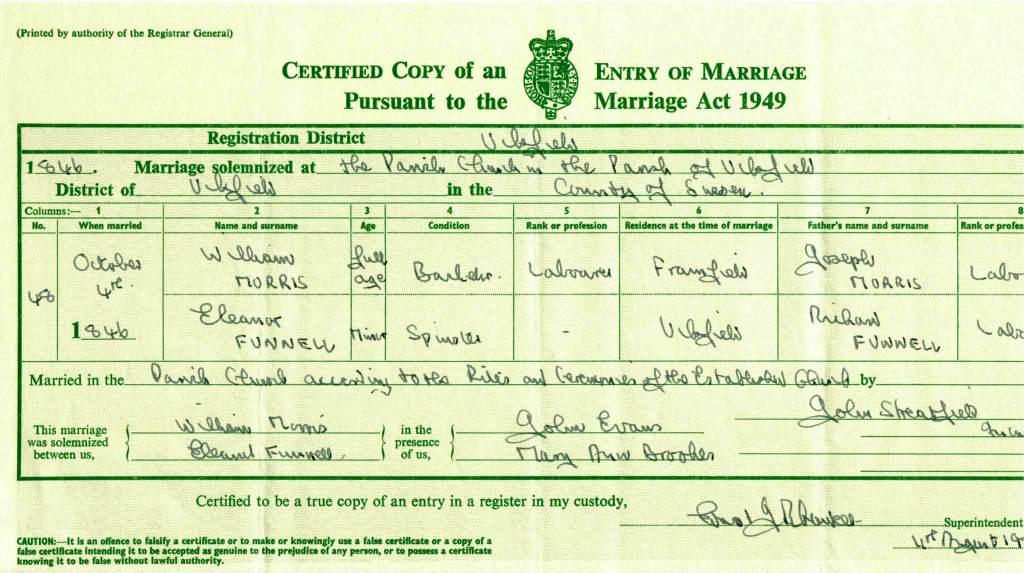 (Printed by authority of the Registrar General)
CERTIFIED COPY of an ENTRY OF MARRIAGE
Pursuant to the Marriage Act 1949
Registration District Uckfield
1846. Marriage solemnized at the Parish Church in the Parish of Uckfield
District of Uckfield in the County of Sussex.
Columns:— 1 2 3 4 5 6 7 8
No. When married Name and surname Age Condition Rank or profession Residence at the time of marriage Father's name and surname Rank or profes
48 October 4th. 1846 William MORRIS full age Bachelor. Labourer Framfield Joseph MORRIS Labo
Eleanor FUNNELL Minor Spinster - Uckfield Richard FUNNELL Labo
Married in the Parish Church according to the Rites and Ceremonies of the Established Church by
John Streatfield
This marriage was solemnized between us, William Morris in the presence of us, John Evans
Funnell. Mary Ann Brooker
Certified to be a true copy of an entry in a register in my custody,
Superintendent
August 19
CAUTION:—It is an offence to falsify a certificate or to make or knowingly use a false certificate or a copy of a
false certificate intending it to be accepted as genuine to the prejudice of any person, or to possess a certificate
knowing it to be false without lawful authority.